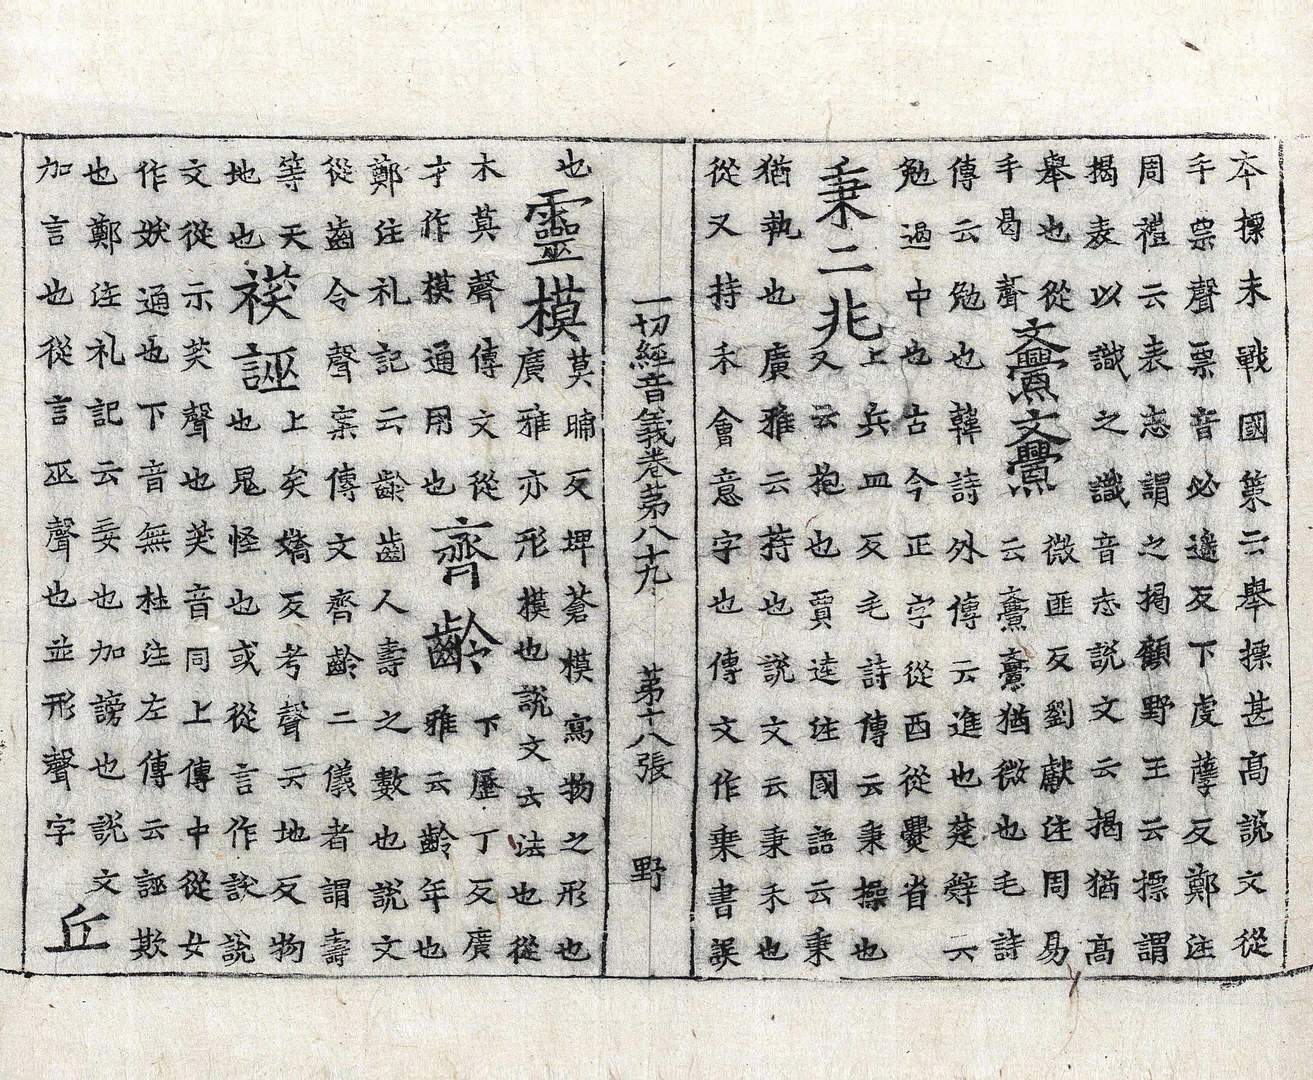 本摽末戰國策云舉摽甚高說文從
手票聲票音必遙反下虔孽反鄭注
周禮云表㤅謂之揭顧野王云摽謂
揭表以識之識音志說文云揭猶高
舉也從
手曷聲亹亹微匪反劉獻注周易
云亹亹猶微也毛詩
傳云勉也韓詩外傳云進也楚辝云
勉遏中也古今正字從酉從爨省
秉二兆上兵皿反毛詩傳云秉操也
又云抱也賈逵注國語云秉
猶執也廣雅云持也說文云秉禾也
從又持禾會意字也傳文作乗書誤
一切經音義卷苐八十九 苐十八張 野
也靈模莫晡反埤蒼模寫物之形也
廣雅亦形模也說文云法也從
木莫聲傳文從
才作模通用也齊齡下歷丁反廣
雅云齡年也
鄭注礼記云齡齒人壽之數也說文
從齒令聲案傳文齊齡二儀者謂壽
等天
地也祦誣上矣嬌反考聲云地反物
也鬼怪也或從言作䛥說
文從示芺聲也芺音同上傳中從女
作妖通也下音無杜注左傳云誣欺
也鄭注礼記云妄也加謗也說文
加言也從言巫聲也並形聲字 丘